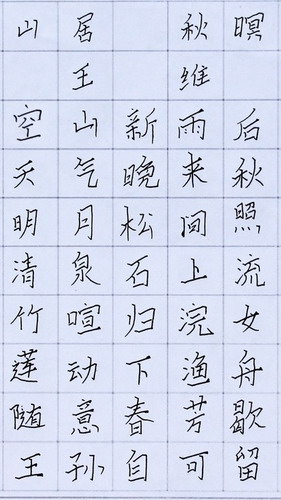 山居秋暝
王维
空山新雨后
天气晚来秋
明月松间照
清泉石上流
竹喧归浣女
莲动下渔舟
随意春芳歇
王孙自可留